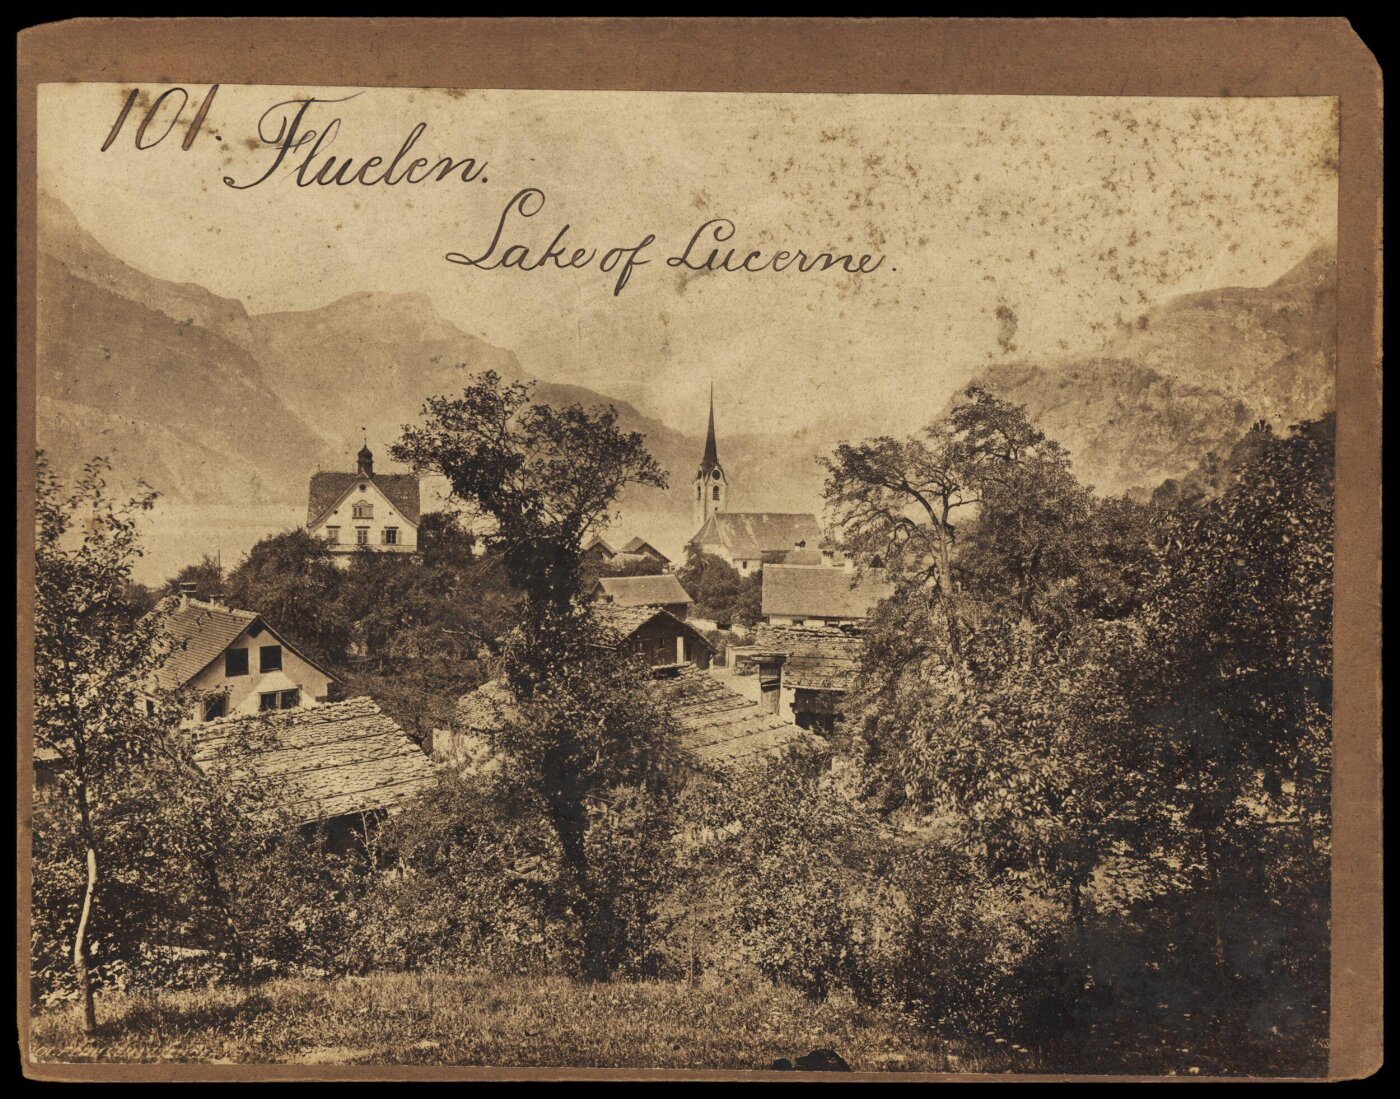 101. Fluelen.
Lake of Lucerne.